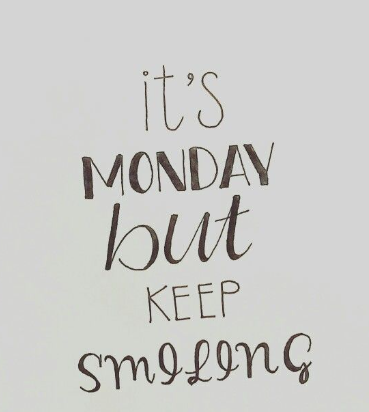 it's
MONDAY
but
KEEP
SMILING